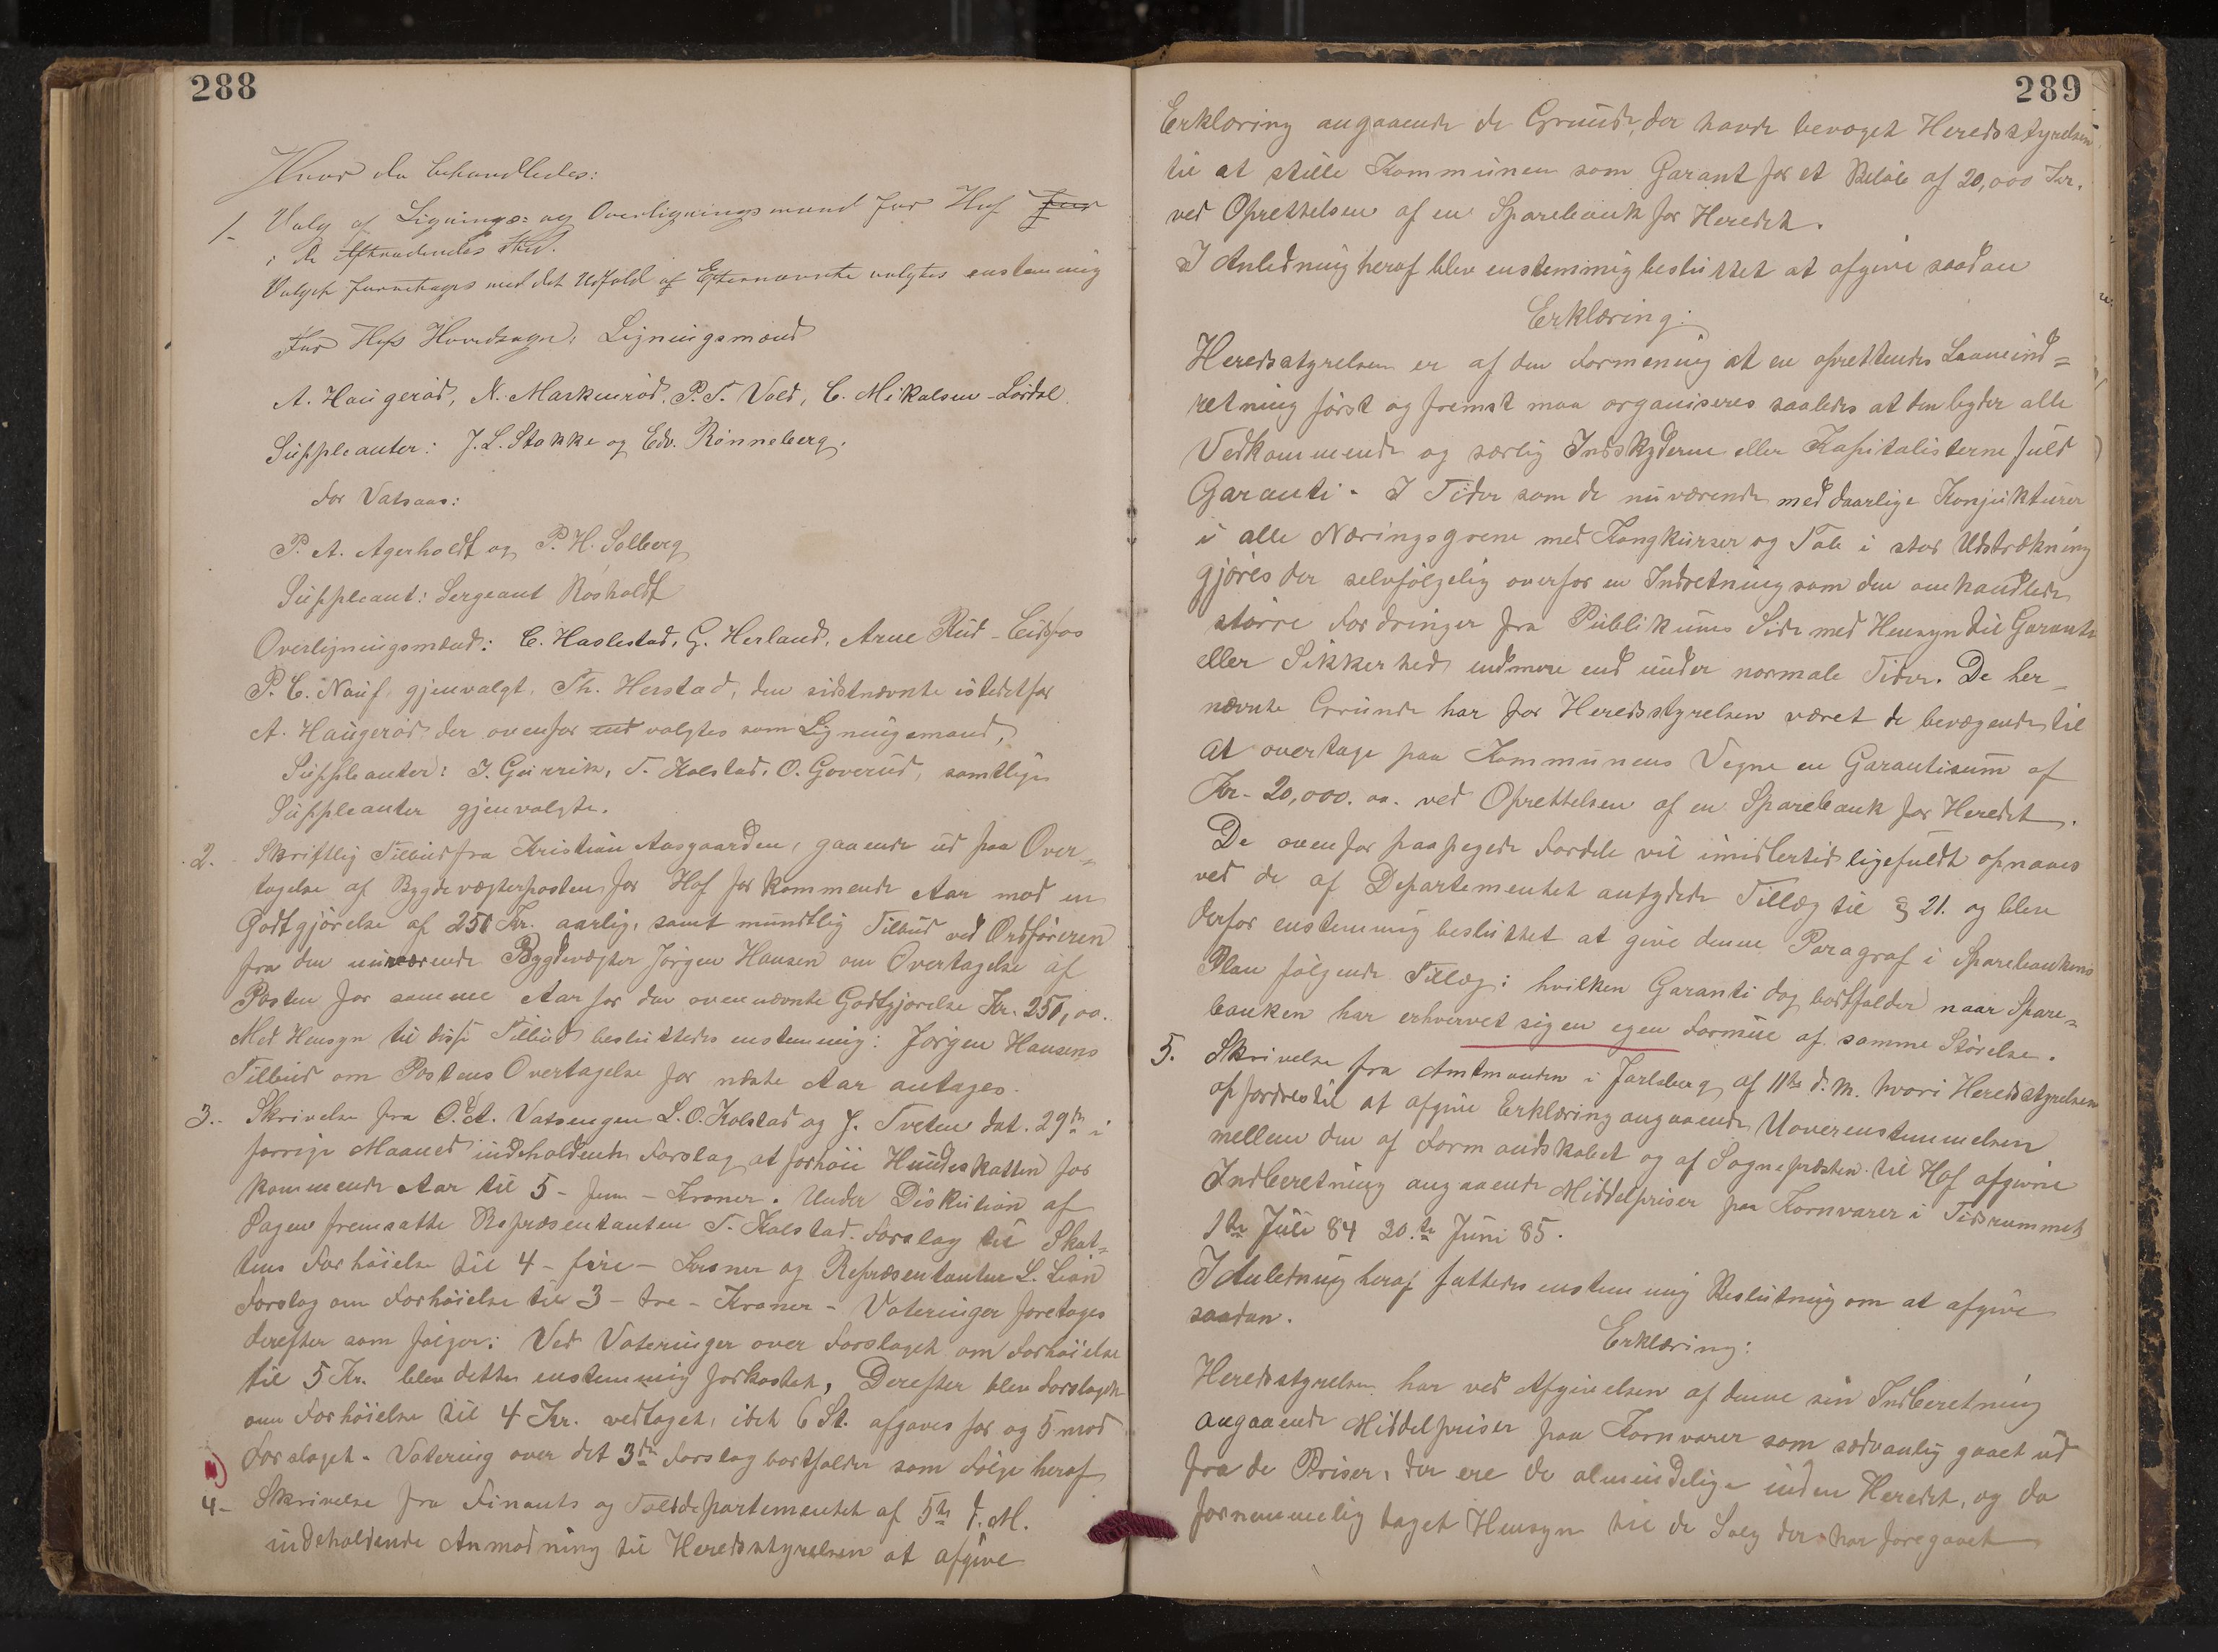 288
Hvor da behandledes:
1- Valg af Lignings- og Overligningsmænd for Hof for
i de Aftrædendes Sted.
Valget foretages med det Udfald af Efternævnte valgtes enstemmig
For Hofs Hovedsogn: Ligningsmænd
A. Haugeröd, N. Markeuröd, P. T. Vold, C. Mikalsen-Lördal.
Suppleanter: J. L. Stokke og Edv. Rönneberg.
For Vatsaas:
P. A. Agerholdt og P. H. Solberg
Suppleant: Sergeant Rösholdt
Overligningsmænd: C. Haslestad, G. Herland, Arne Rud-Eidsfos
P. C. Nauf gjenvalgt, Th. Herstad, den sidstnævnte istedetfor
A. Haugeröd der ovenfor ud valgtes som Ligningsmand,
Suppleanter: J. Gurrik, T. Kolstad, O. Goverud, samtlige
Suppleanter gjenvalgte.
2. Skriftlig Tilbud fra Kristian Aasgaarden, gaaende ud paa Over-
tagelse af Bygdevægterposten for Hof for kommende Aar mod en
Godtgjörelse af 250 Kr. aarlig, samt mundtlig Tilbud ved Ordföreren
fra den nuværende Bygdevægter Jörgen Hansen om Overtagelse af
Posten for samme Aar for den ovennævnte Godtgjörelse Kr. 250,00.
Med Hensyn til disse Tilbud besluttedes enstemmig: Jörgen Hansens
Tilbud om Postens Overtagelse for næste Aar antages.
3.- Skrivelse fra O. A. Vatsengen L. O. Kolstad og J. Tveten dat. 29de i
forrige Maaned indeholdende Forslag at forhöie Hundeskatten for
kommende Aar til 5 - fem - Kroner. Under Diskution af
Sagen fremsatte Repræsentanten T. Kolstad Forslag til Skat-
tens Forhöielse til 4 - fire - Kroner og Repræsentanten L. Lian
Forslag om Forhöielse til 3 - tre - Kroner - Voteringer foretages
derefter som fölger: Ved Voteringer over Forslaget om Forhöielse
til 5 Kr. blev dette enstemmig forkastet, Derefter blev Forslaget
om Forhöielse til 4 Kr. vedtaget, idet 6 St. afgaves for og 5 mod
Forslaget. Votering over det 3de Forslag bortfalder som Fölge heraf
4- Skrivelse fra Finants og Tolddepartementet af 5te d. M.
indeholdende Anmodning til Heredsstyrelsen at afgive
289
Erklæring angaaende de Grunde, der havde bevæget Heredsstyrelsen
til at stille Kommunen som Garant for et Belöb af 20,000 Kr.
ved Oprettelsen af en Sparebank for Heredet.
I Anledning heraf blev enstemmig besluttet at afgive saadan
Erklæring:
Heredsstyrelsen er af den Formening at en oprettendes Laaneind=
retning först og fremst maa organiseres saaledes at den byder alle
Vedkommende og særlig Indskyderne eller Kapitalisterne fuld
Garanti. I Tider som de nuværende med daarlige Konjukturer
i alle Næringsgrene med Kongkurser og Tab i stor Udstrækning
gjöres der selvfölgelig overfor en Indretning som den omhandlede
större Fordringer fra Publikums Side med Hensyn til Garanti
eller Sikkerhed endmere end under normale Tider. De her-
nævnte Grunde har for Heredsstyrelsen været de bevægende til
at overtage paa Kommunens Vegne en Garantisum af
Kr. 20,000.00. ved Oprettelsen af en Sparebank for Heredet.
De ovenfor paapegede Fordele vil imidlertid ligefuldt opnaaes
ved de af Departementet antydede Tillæg til § 21. og blev
derfor enstemmig besluttet at give denne Paragraf i Sparebankens
Plan fölgende Tillæg: hvilken Garanti dog bortfalder naar Spare=
banken har erhvervet sig en egen Formue af samme Störelse.
5. Skrivelse fra Amtmanden i Jarlsberg af 11te d. M. hvori Heredsstyrelsen
opfordres til at afgive Erklæring angaaende Uoverenstemmelsen
mellem den af Formandskabet og af Sognepræsten til Hof afgivne
Indberetning angaaende Middelpriser paa Kornvarer i Tidsrummet
1ste Juli 84 30.te Juni 85.
I Anledning heraf fattedes enstemmig Beslutning om at afgive
saadan.
Erklæring:
Heredsstyrelsen har ved Afgivelsen af denne sin Indberetning
angaaende Middelpriser paa Kornvarer som sædvanlig gaaet ud
fra de Priser, der ere de almindelige inden Heredet, og da
fornemmelig taget Hensyn til de Salg der har foregaaet